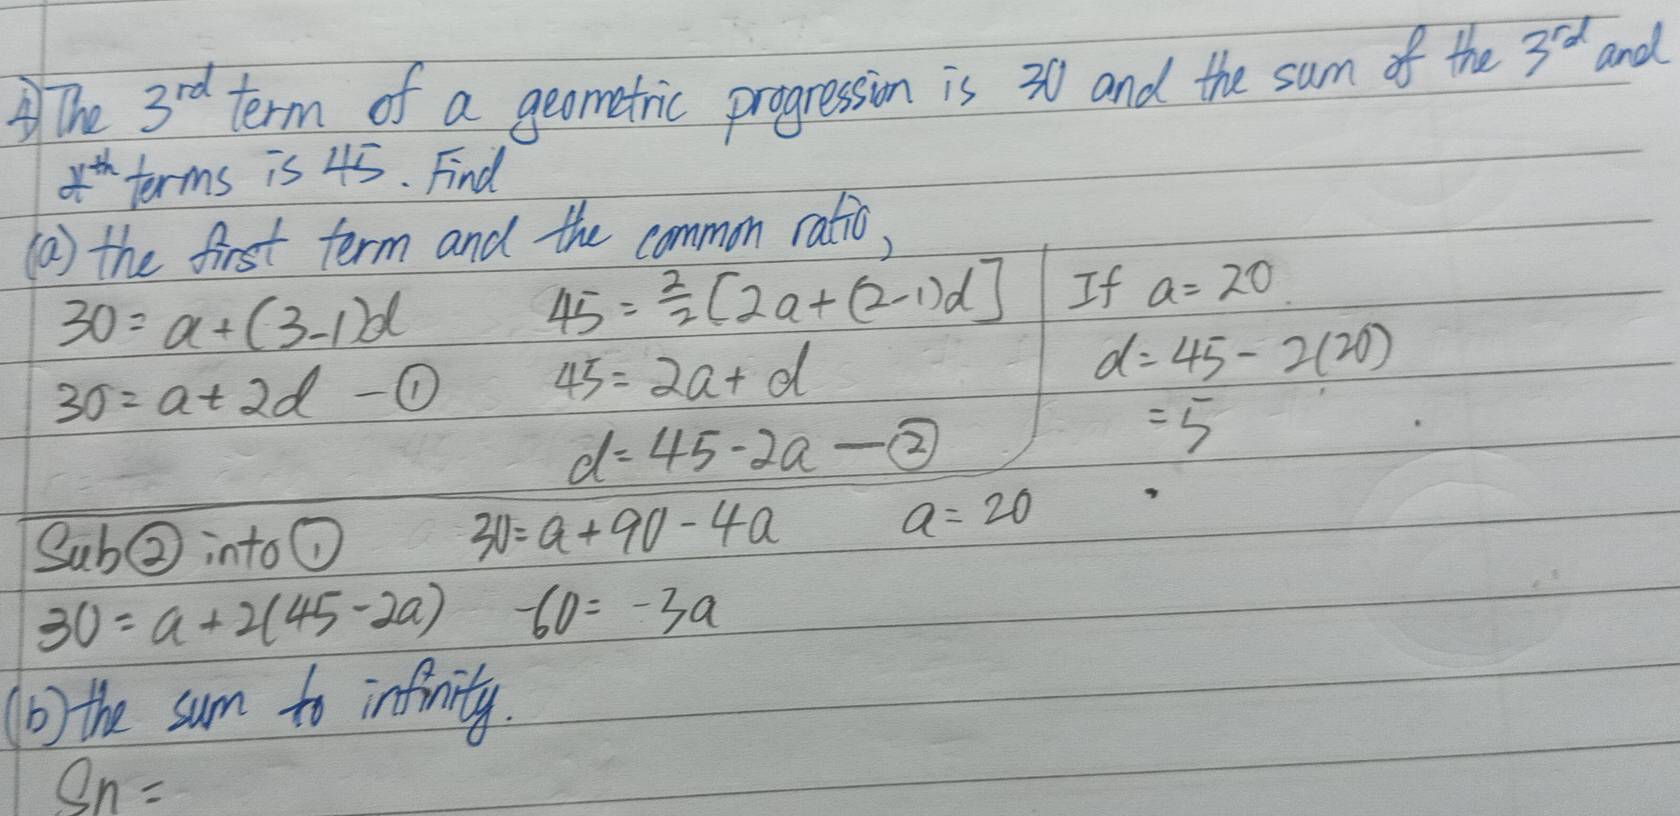 4) The 3rd term of a geometric progression is 30 and the sum of the 3rd and
4th terms is 45. Find
(a) the first term and the common ratio,
30 = a + (3-1)d
30 = a + 2d - ①
45 = 2/2 [2a + (2-1)d]
45 = 2a + d
d = 45 - 2a — ②
If a = 20
d = 45 - 2(20)
= 5
Sub ② into ①
30 = a + 2(45 - 2a)
30 = a + 90 - 4a
-60 = -3a
a = 20
(b) the sum to infinity.
Sn =